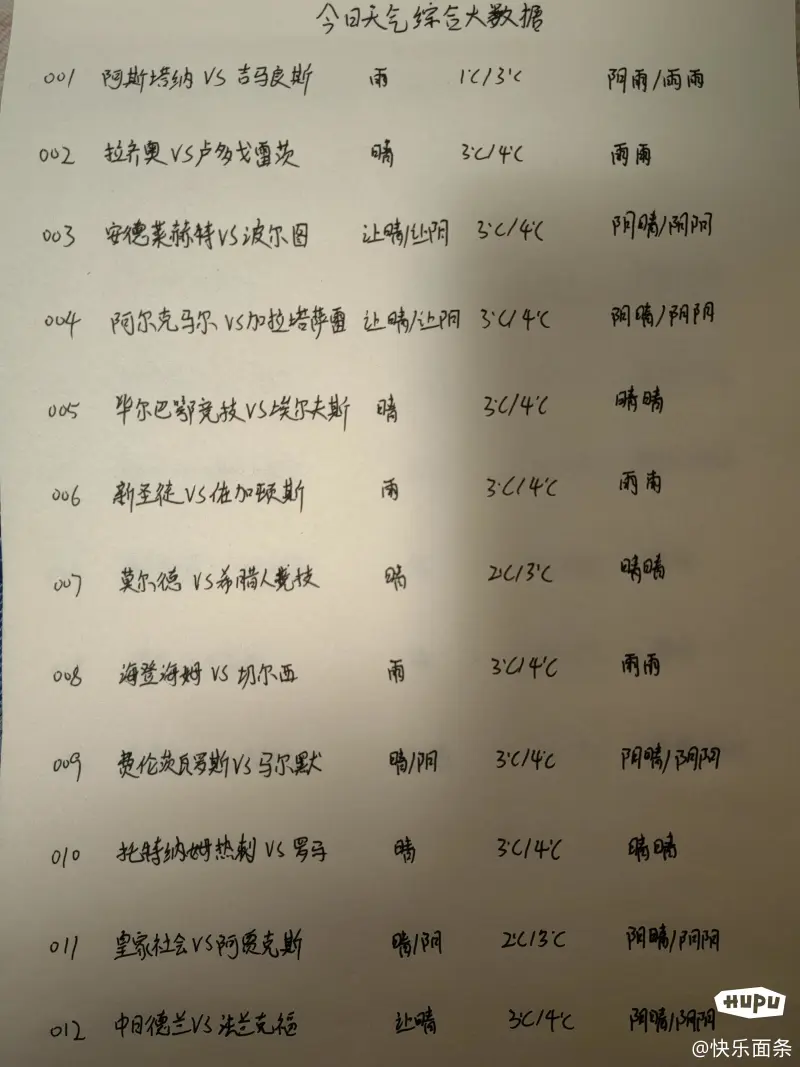 今日天气综合大数据
001 阿斯塔纳 VS 吉马良斯 雨 1℃/3℃ 阴雨/雨雨
002 拉齐奥VS卢多戈雷茨 晴 3℃/4℃ 雨雨
003 安德莱赫特VS波尔图 让晴/让阴 3℃/4℃ 阴晴/阴阴
004 阿尔克马尔VS加拉塔萨雷 让晴/让阴 3℃/4℃ 阴晴/阴阴
005 毕尔巴鄂竞技VS埃尔夫斯 晴 3℃/4℃ 晴晴
006 新圣徒VS佐加顿斯 雨 3℃/4℃ 雨雨
007 莫尔德 VS希腊人竞技 晴 2℃/3℃ 晴晴
008 海登海姆 VS 切尔西 雨 3℃/4℃ 雨雨
009 费伦茨瓦罗斯VS马尔默 晴/阴 3℃/4℃ 阴晴/阴阴
010 托特纳姆热刺 VS 罗马 晴 3℃/4℃ 晴晴
011 皇家社会VS阿贾克斯 晴/阴 2℃/3℃ 阴晴/阴阴
012 中日德兰VS法兰克福 让晴 3℃/4℃ 阴晴/阴阴
HUPU
@快乐面条